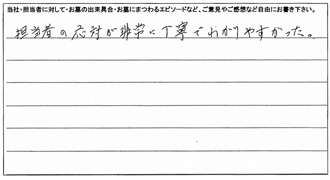 当社・担当者に対して・お墓の出来具合・お墓にまつわるエピソードなど、ご意見やご感想など自由にお書き下さい。
担当者の応対が非常に丁寧でわかりやすかった。